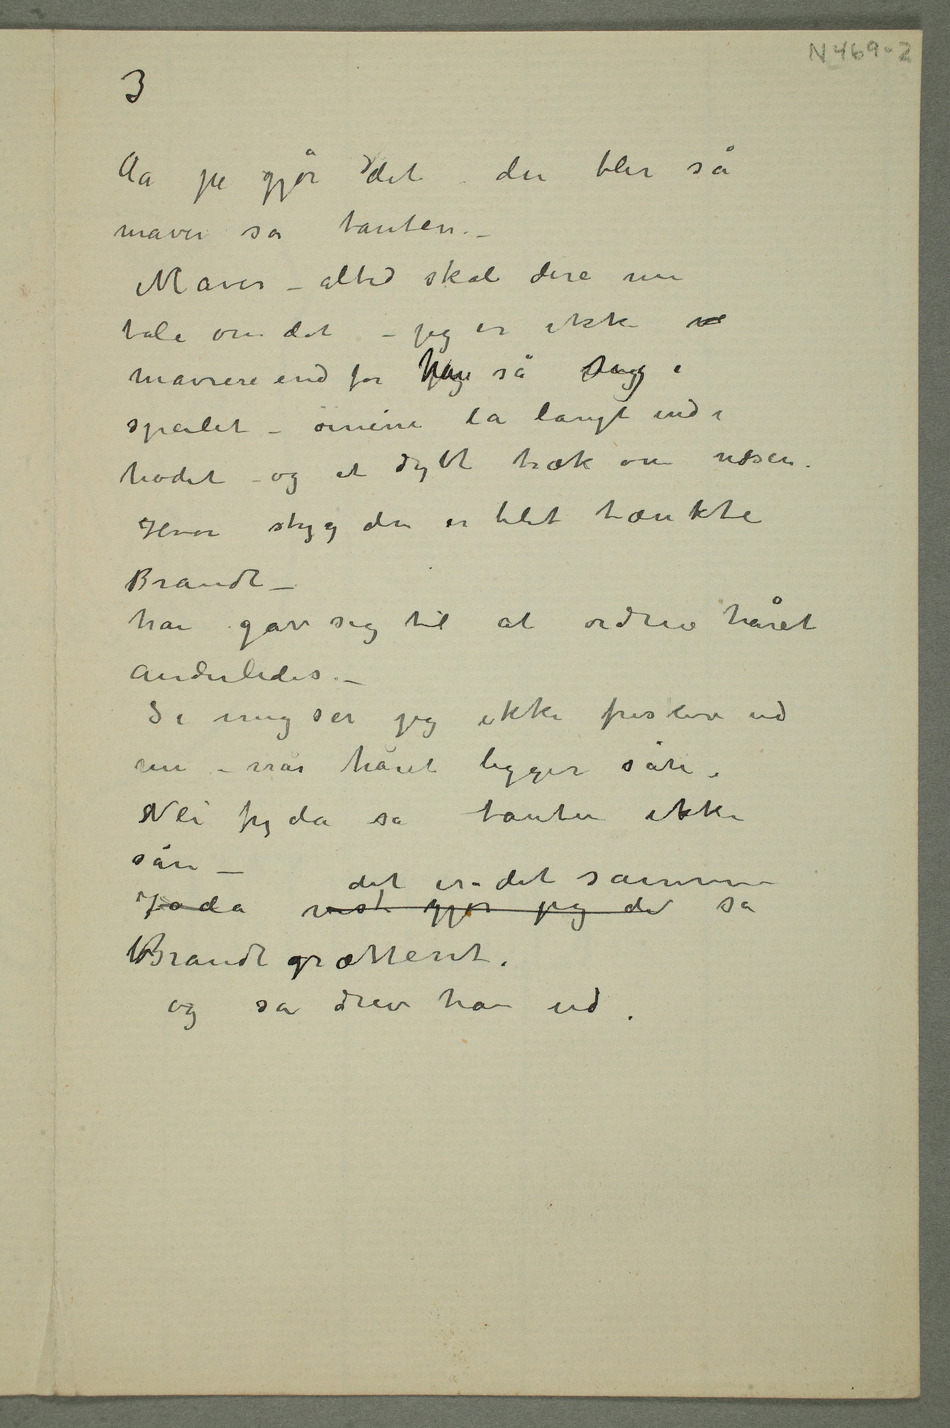 N 469-2
3
Aa je gjør det du blir så
maver sa tanten. –
Maver – altid skal dere nu
tale om det – jeg er ikke
mavrere end før så i
speilet – øinene la langt ind i
hodet – og et dybt træk om næsen.
Hvor styg du er blit tænkte
Brandt –
han gav sig til at ordne håret
anderledes. –
Si mig ser jeg ikke friskere ud
nu – når håret ligger sån.
Nei fy da sa tanten ikke
sån –
det er det samme
Jada vist gjør jeg det sa
Brandt grætterit.
og sa drev han ud.